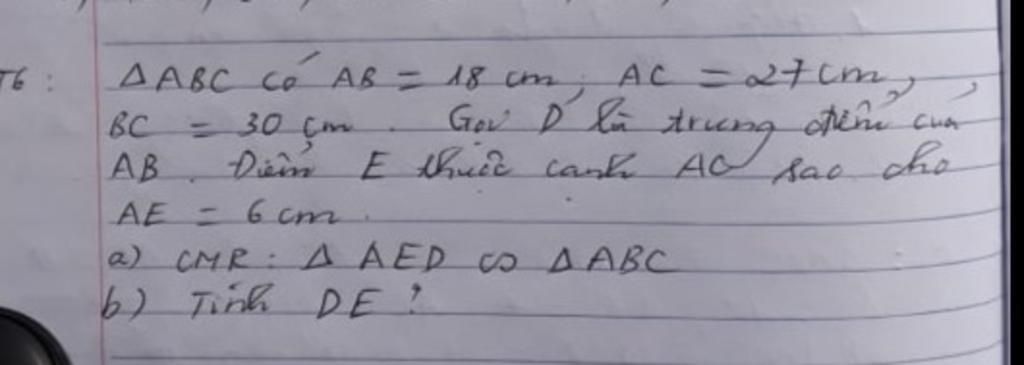 T6: ΔABC có AB = 18 cm, AC = 27 cm,
BC = 30 cm. Gọi D là trung điểm của
AB. Điểm E thuộc cạnh AC sao cho
AE = 6 cm.
a) CMR: Δ AED ∽ Δ ABC
b) Tính DE?